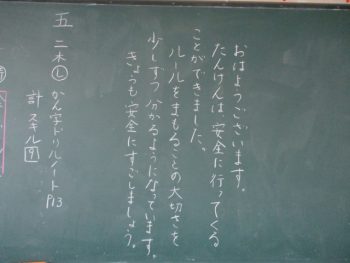 おはようございます。
たんけんは安全に行ってくる
ことができました。
ルールをまもることの大切さを
少しずつ分かるようになっています。
きょうも安全にすごしましょう。
五
二木Ⓛ かん字ドリルノート P13
計 スキル⑨